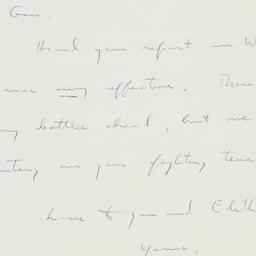 Heard your report on W
was very effective. There
battles ahead, but we
on your fighting
Love to you and Edith
Yours,